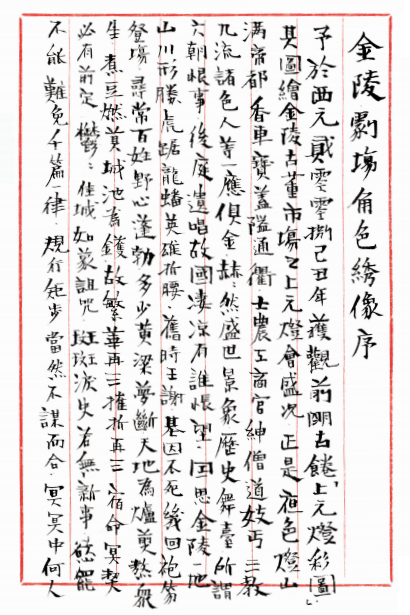 金陵劇場角色綉像序
予於西元貳零零捌己丑年獲觀前明古饒「上元燈彩圖」
其圖繪金陵古董市場之上元燈會盛況正是夜色燈山
滿帝都香車寶蓋隘通衢士農工商官紳僧道妓丐三教
九流諸色人等一應俱全赫赫然盛世景象歷史舞臺所謂
六朝恨事後庭遺唱故國凄凉有誰悵望回思金陵一地
山川形勝虎踞龍蟠英雄折腰舊時王謝基因不死幾回袍笏
登場尋常百姓野心蓬勃多少黃梁夢斷天地為爐煎熬衆
生煮豆燃萁城池為鑊故繁華再三摧折再三宿命冥契
必有前定鬱鬱佳城如蒙詛咒斑斑淚史若無新事慾罷
不能難免千篇一律規行矩步當然不謀而合冥冥中何人